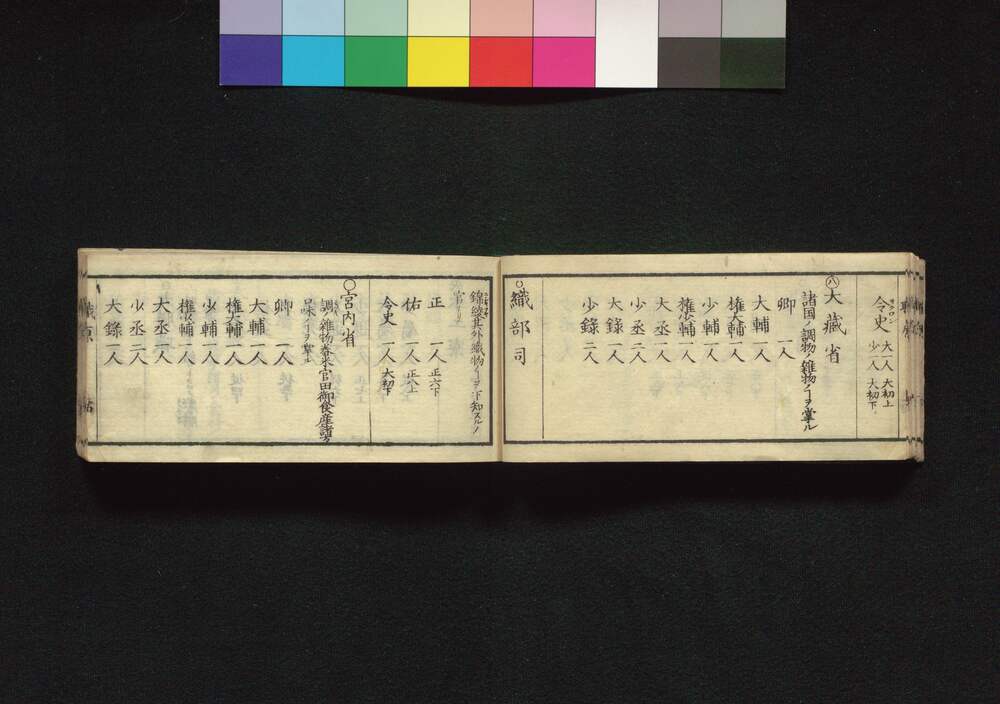 令史 大一人 大初上
少一人 大初下
㊇大藏省
諸国ノ調物雑物ノヿヲ掌ル
卿 一人
大輔 一人
権大輔 一人
少輔 一人
権少輔 一人
大丞 一人
少丞 二人
大錄 一人
少錄 二人
○織部司
錦綾其外ノ織物ノヿヲ下知スルノ
官ナリ
正 一人 正六下
佑 一人 正八上
令史 一人 大初下
○宮内省
調雑物舂米官田御食産諸方
卿 一人
大輔 一人
権大輔 一人
少輔 一人
権少輔 一人
大丞 一人
少丞 二人
大錄 一人